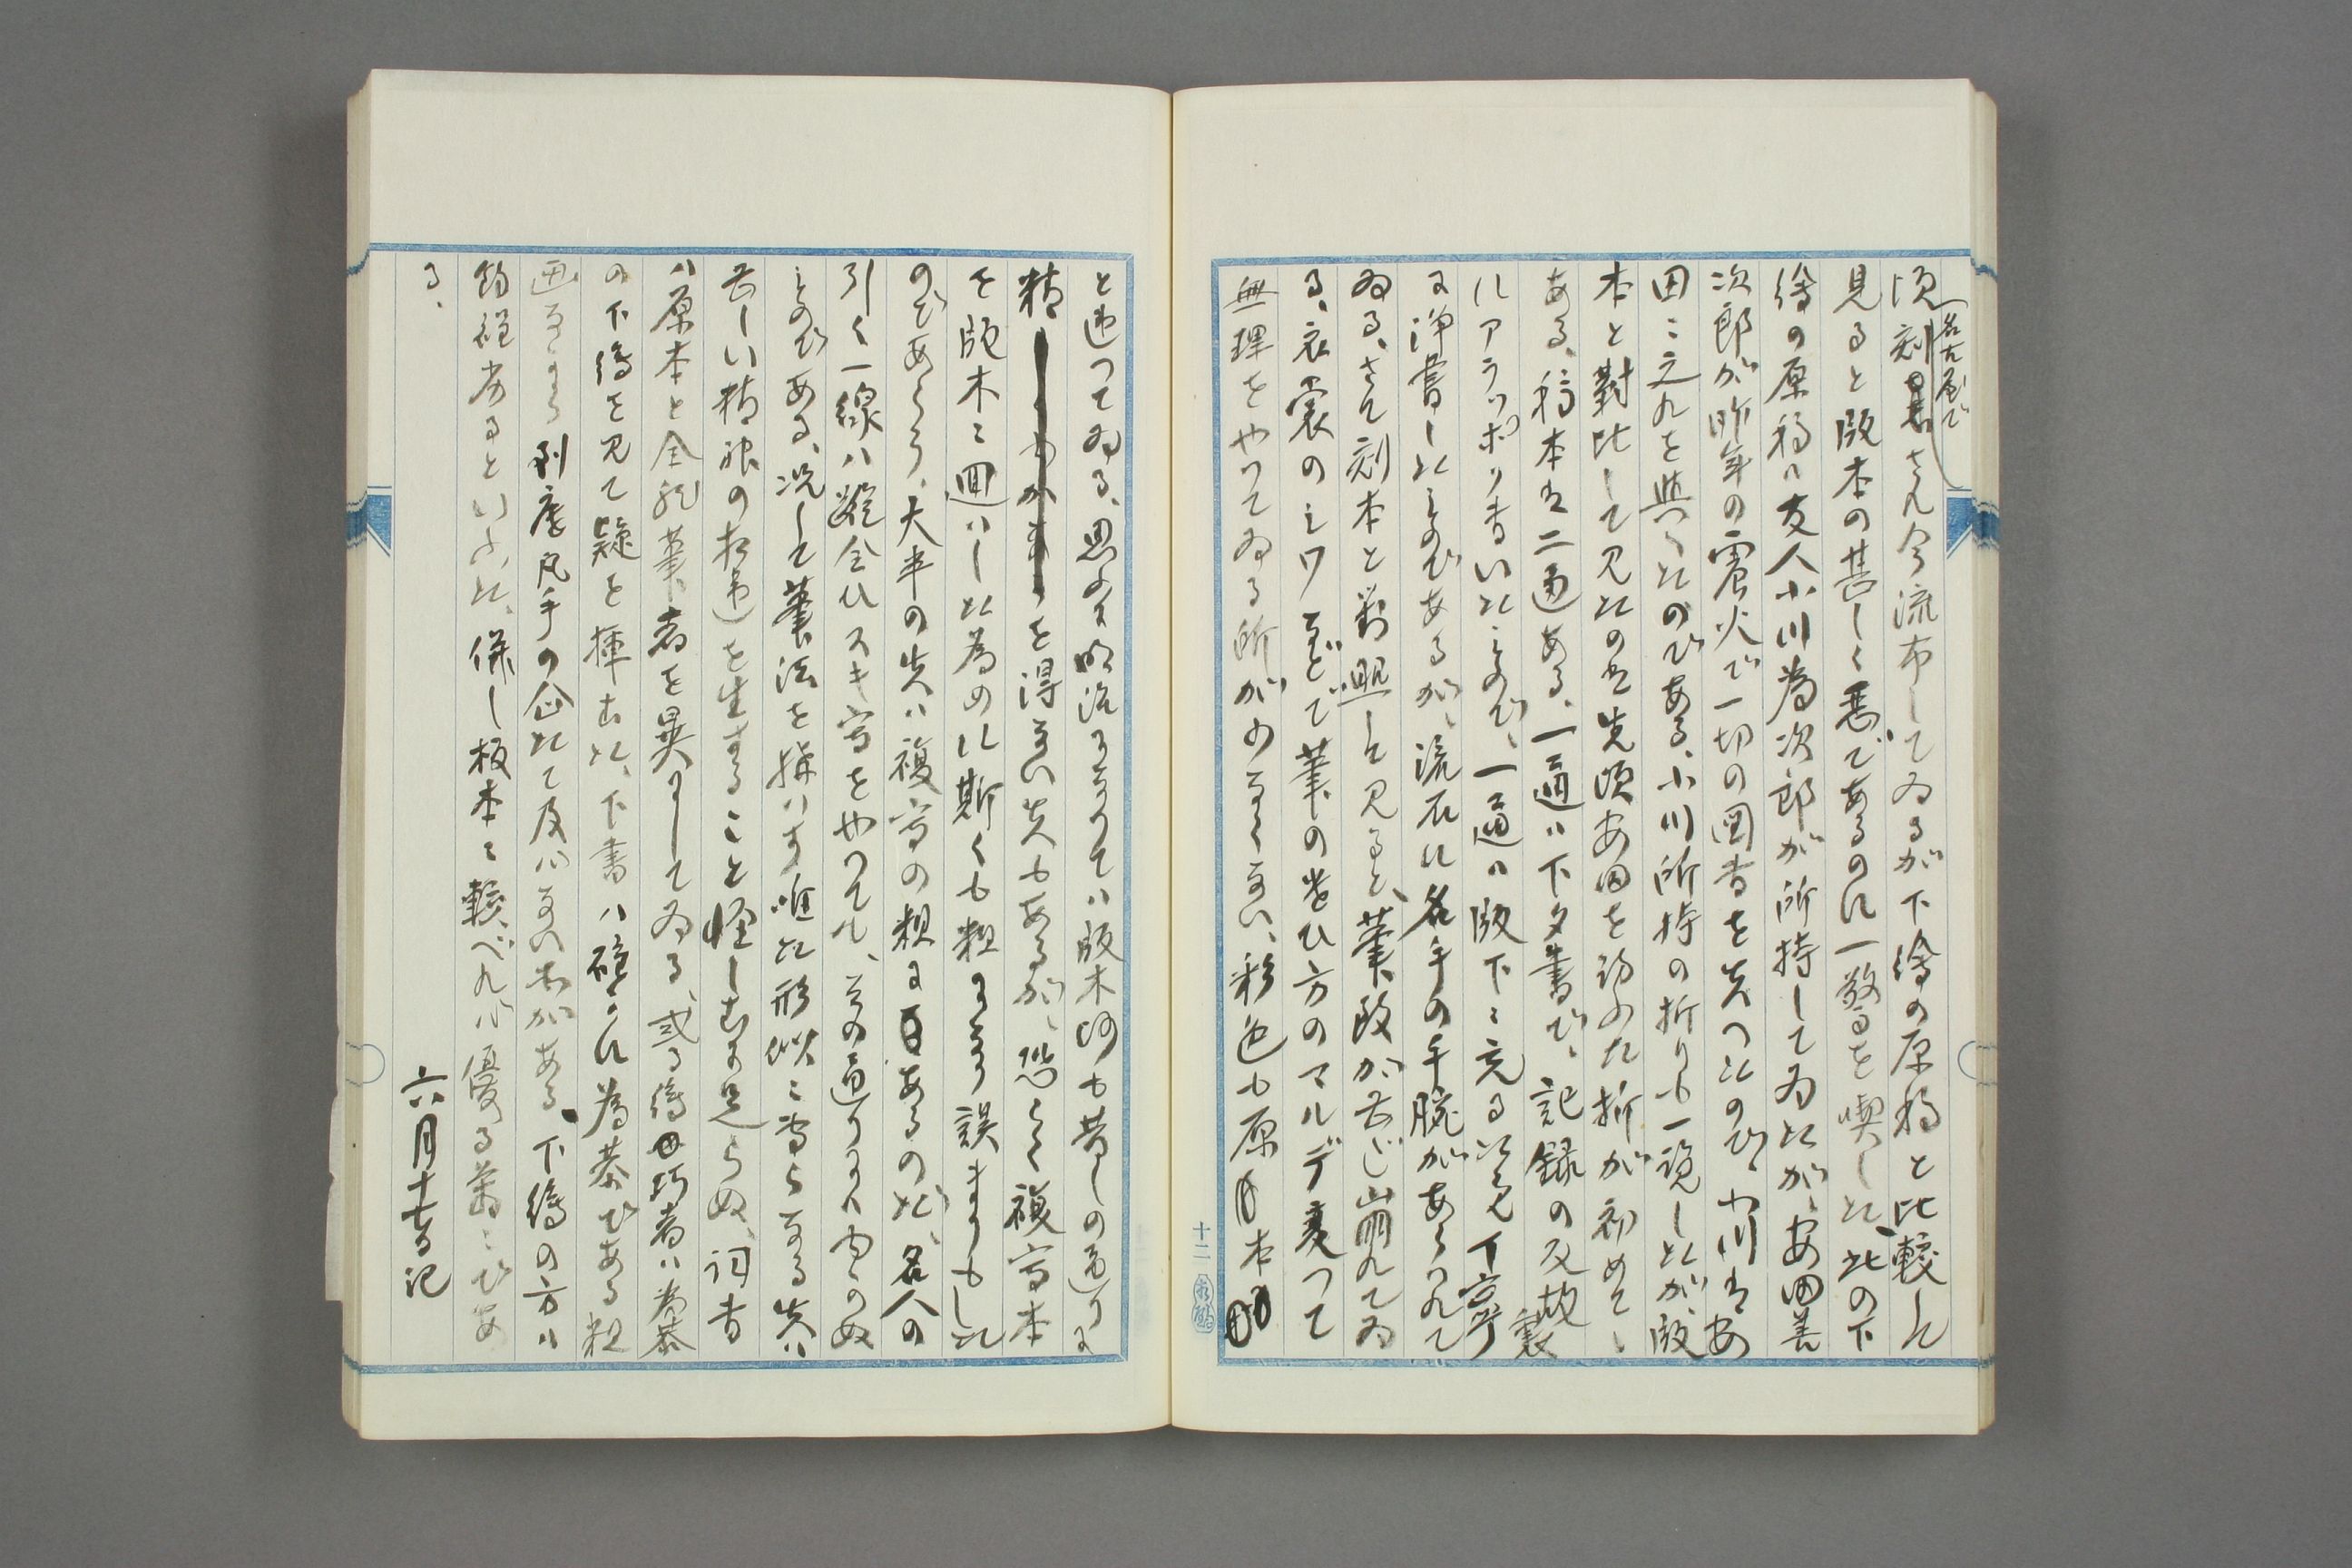 名古屋で
頃刻さん今流布してゐるが下繪の原稿と比較して
見ると版本の甚しく悪であるのに一驚を喫した、此の下
繪の原稿ハ友人小川為次郎が所持してゐたが、安田善
次郎が昨年の震火で一切の図書を失つたので、小川は安
田に之れを與へたのである、小川所持の折りも一覧したが、版
本と對比して見たのは先頃安田を訪ふた折が初めて
ある、稿本は二通ある、一通ハ下タ書で、記録の反故裏
にアラッポリ書いたもので、一通ハ版下に充る以て丁寧
に浄書したものであるが、流石に名手の手腕があらハれて
ゐる、さて刻本と對照して見ると、筆致が甚じ崩れてゐ
る、衣裳のシワなどで筆の運ひ方のマルデ違つて
無理をやつてゐる所が少なくない、彩色も原本
十二
と違つてゐる、思ふに明治になつてハ版木师も昔しの通りに
を得ない点もあるが、恐らく複寫本
を版木に廻ハした為めに斯くも粗になり誤まりもした
のであらう、大半の失ハ複寫の粗にあるのだ、名人の
引く一線ハ縦令ひスキ寫をやつても、その通りにハ向かぬ
ものである、况して筆法を構ハず唯た形似に専らなる失ハ
甚しい精神の相違を生ずること怪しむに足らぬ、詞書
ハ原本と全然筆者を異にしてゐる、或る繪巧者ハ為恭
の下繪を見て疑を挿さむ、下書ハ確かに為恭である粗
画なるも到底凡手の企たて及ハない処がある、下繪の方ハ
的確あるといふた、併し板本に較べれば優る萬々である
る、
六月十七日記